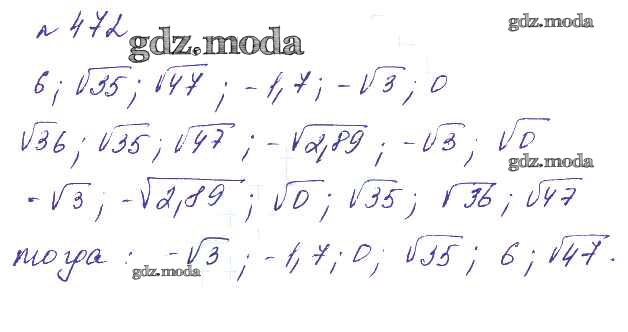 № 472
gdz.moda
gdz.moda
6; √35; √47; -1,7; -√3; 0
√36; √35; √47; -√2,89; -√3; √0
gdz.moda
-√3; -√2,89; √0; √35; √36; √47
тогда: -√3; -1,7; 0; √35; 6; √47.
gdz.moda